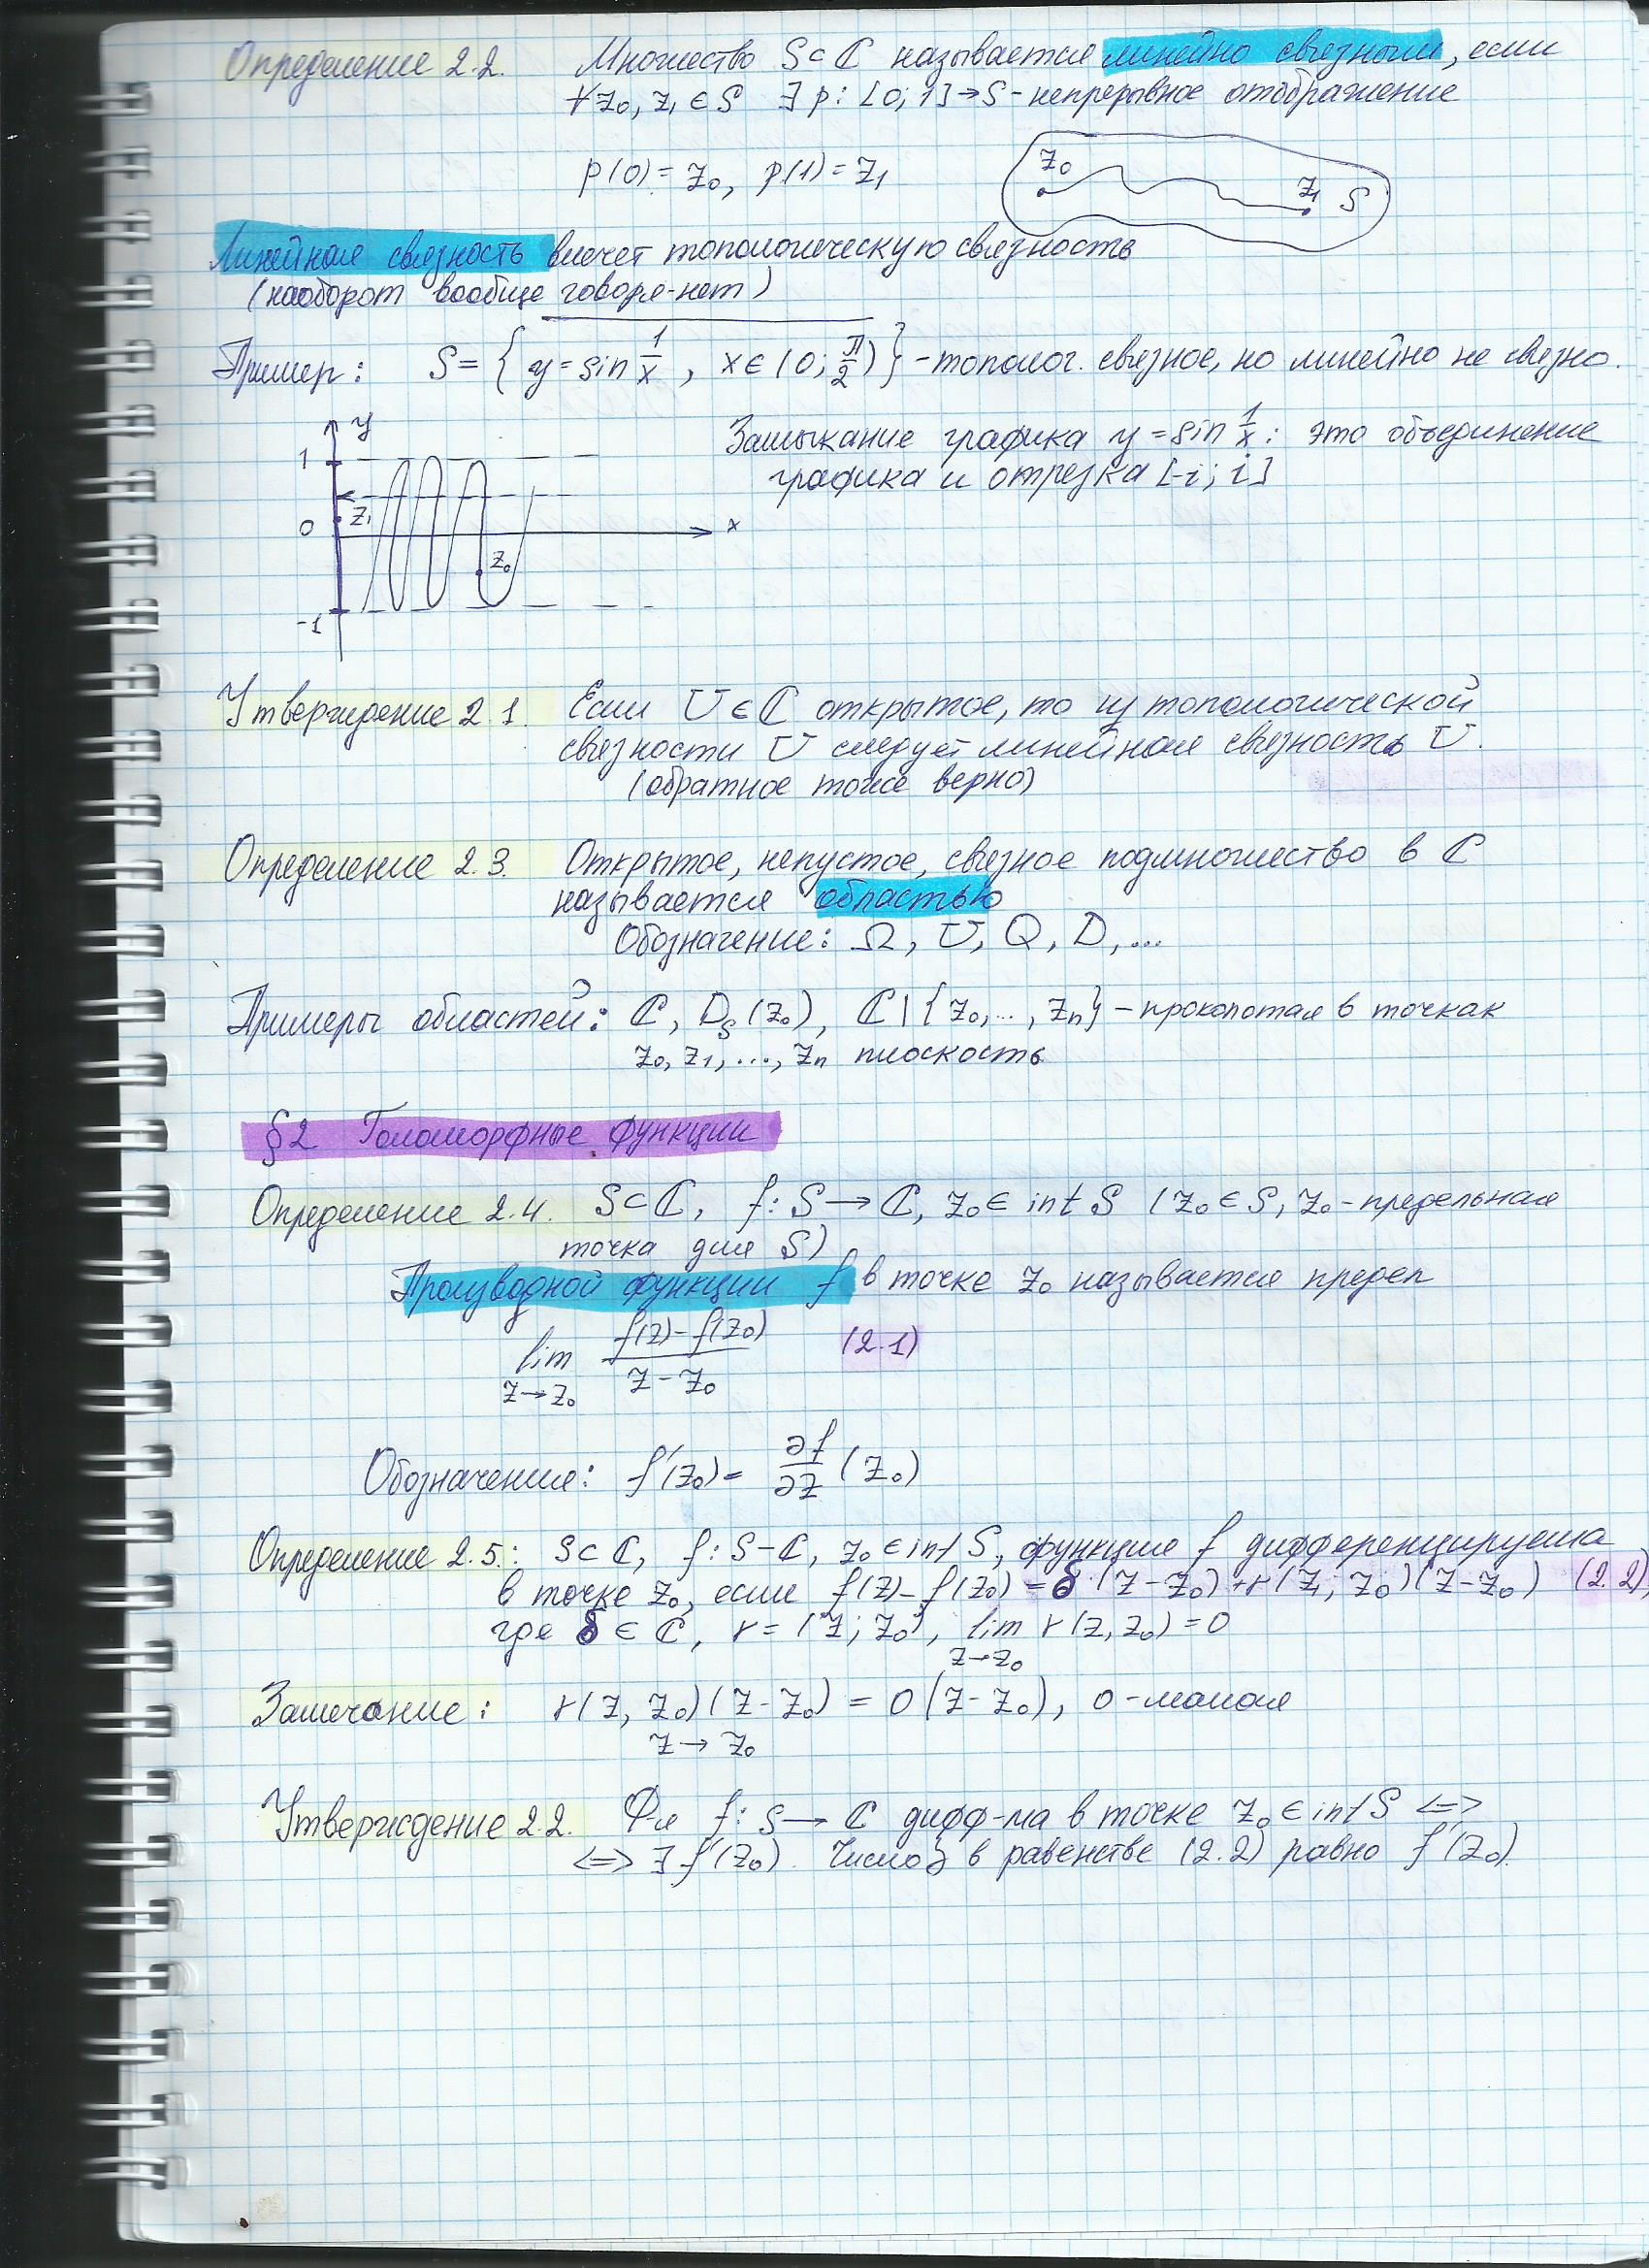 Определение 2.2. Множество S⊂ℂ называется линейно связным, если
∀z₀, z₁ ∈ S ∃ p: [0; 1] → S - непрерывное отображение
p(0) = z₀, p(1) = z₁
z₀
z₁ S
Линейная связность влечет топологическую связность
(наоборот вообще говоря - нет)
Пример: S = { y = sin 1/x , x ∈ (0; π/2)} - тополог. связное, но линейно не связно.
Замыкание графика y = sin 1/x : это объединение
графика и отрезка [-i; i]
y
1
z₁
0
x
z₀
-1
Утверждение 2.1. Если U ∈ ℂ открытое, то из топологической
связности U следует линейная связность U.
(обратное тоже верно)
Определение 2.3. Открытое, непустое, связное подмножество в ℂ
называется областью
Обозначение: Ω, U, Q, D, ...
Примеры областей: ℂ, D_δ(z₀), ℂ\{z₀, ..., zₙ} - проколотая в точках
z₀, z₁, ..., zₙ плоскость
§2 Голоморфные функции
Определение 2.4. S⊂ℂ, f: S → ℂ, z₀ ∈ int S (z₀ ∈ S, z₀ - предельная
точка для S)
Производной функции f в точке z₀ называется предел
lim z→z₀ (f(z) - f(z₀))/(z - z₀) (2.1)
Обозначение: f′(z₀) = ∂f/∂z (z₀)
Определение 2.5.: S⊂ℂ, f: S - ℂ, z₀ ∈ int S, функция f дифференцируема
в точке z₀, если f(z) - f(z₀) = δ·(z - z₀) + r(z; z₀)(z - z₀) (2.2),
где δ ∈ ℂ, r = (z; z₀), lim z→z₀ r(z, z₀) = 0
Замечание: r(z, z₀)(z - z₀) = o(z - z₀), o - малая
z → z₀
Утверждение 2.2. Ф-я f: S → ℂ дифф-ма в точке z₀ ∈ int S <=>
<=> ∃ f′(z₀). Число δ в равенстве (2.2) равно f′(z₀).